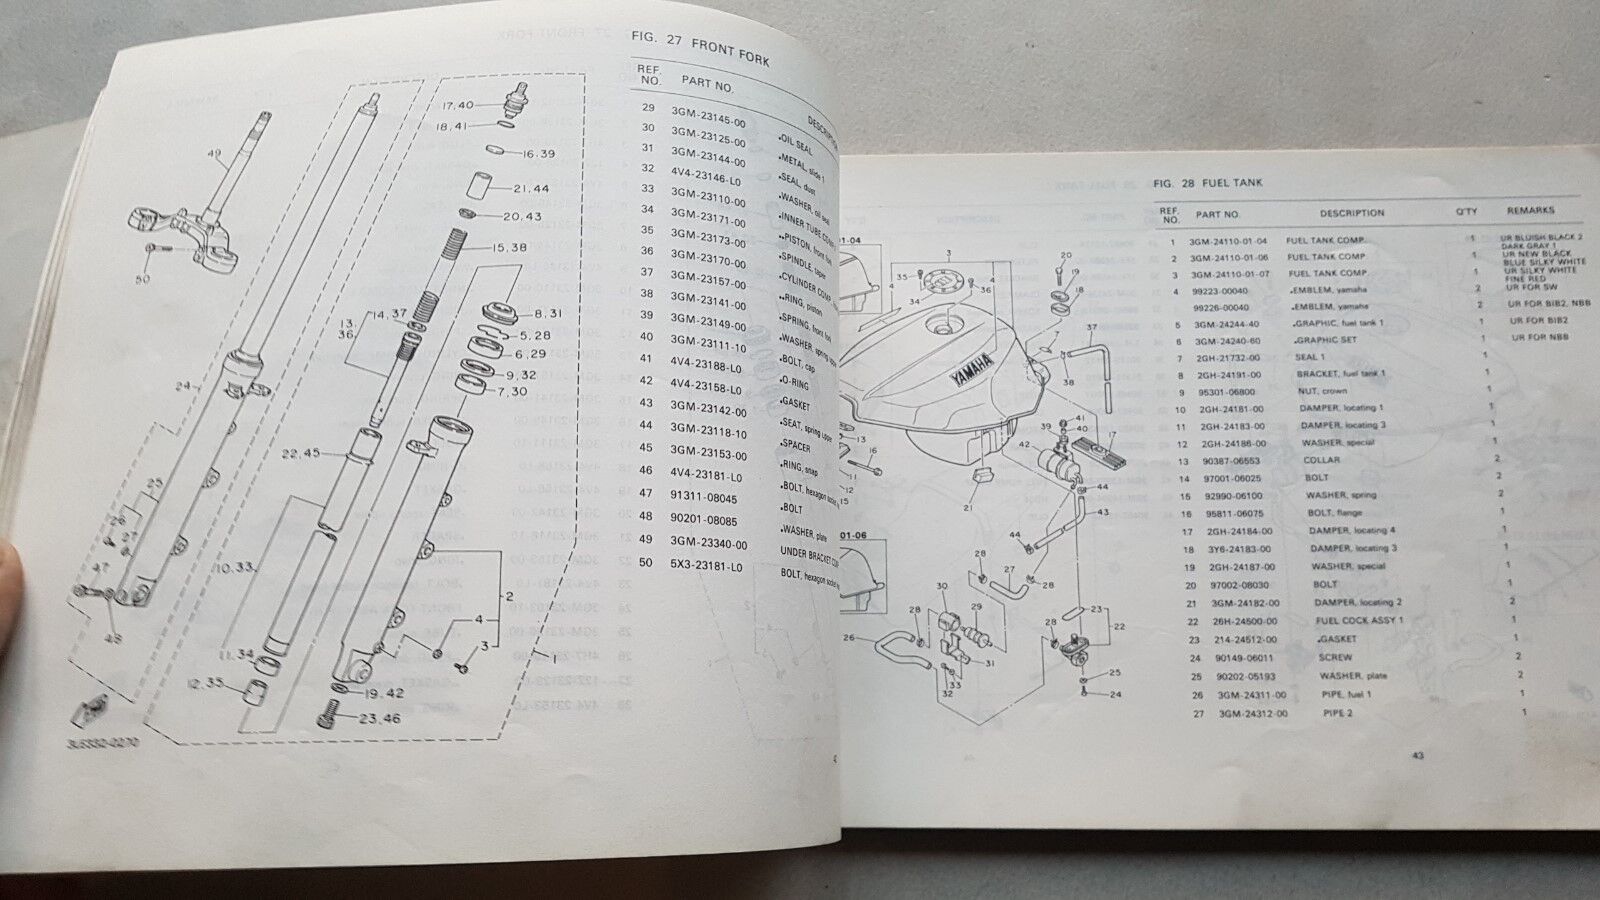 FIG. 27 FRONT FORK
REF. NO. PART NO. DESCRIPTION
29 3GM-23145-00 .OIL SEAL
30 3GM-23125-00 .METAL, slide 1
31 3GM-23144-00 .SEAL, dust
32 4V4-23146-L0 .WASHER, oil seal
33 3GM-23110-00 .INNER TUBE
34 3GM-23171-00 ..PISTON, front fork
35 3GM-23173-00 ..SPINDLE, taper
36 3GM-23170-00 .CYLINDER COMP.
37 3GM-23157-00 ..RING, piston
38 3GM-23141-00 .SPRING, front fork
39 3GM-23149-00 .WASHER, spring upper
40 3GM-23111-10 .BOLT, cap
41 4V4-23188-L0 .O-RING
42 4V4-23158-L0 .GASKET
43 3GM-23142-00 .SEAT, spring upper
44 3GM-23118-10 .SPACER
45 3GM-23153-00 .RING, snap
46 4V4-23181-L0 .BOLT, hexagon socket
47 91311-08045 .BOLT
48 90201-08085 .WASHER, plate
49 3GM-23340-00 UNDER BRACKET
50 5X3-23181-L0 BOLT, hexagon socket
17,40
18,41
16,39
21,44
20,43
15,38
14,37
13,
36
8,31
5,28
6,29
9,32
7,30
49
50
24
22,45
25
26
27
47
48
10,33
11,34
12,35
2
4
3
1
19,42
23,46
3L6332-0270
FIG. 28 FUEL TANK
REF. NO. PART NO. DESCRIPTION Q'TY REMARKS
1 3GM-24110-01-04 FUEL TANK COMP. 1 UR BLUISH BLACK 2
DARK GRAY 1
2 3GM-24110-01-06 FUEL TANK COMP 1 UR NEW BLACK
BLUE SILKY WHITE
3 3GM-24110-01-07 FUEL TANK COMP. 1 UR SILKY WHITE
FINE RED
4 99223-00040 .EMBLEM, yamaha 2 UR FOR SW
99226-00040 .EMBLEM, yamaha 2 UR FOR BIB2, NBB
5 3GM-24244-40 .GRAPHIC, fuel tank 1 1 UR FOR BIB2
6 3GM-24240-60 .GRAPHIC SET 1 UR FOR NBB
7 2GH-21732-00 SEAL 1 1
8 2GH-24191-00 BRACKET, fuel tank 1 1
9 95301-06800 NUT, crown 1
10 2GH-24181-00 DAMPER, locating 1 1
11 2GH-24183-00 DAMPER, locating 3 1
12 2GH-24186-00 WASHER, special 1
13 90387-06553 COLLAR 2
14 97001-06025 BOLT 2
15 92990-06100 WASHER, spring 2
16 95811-06075 BOLT, flange 1
17 2GH-24184-00 DAMPER, locating 4 1
18 3Y6-24183-00 DAMPER, locating 3 1
19 2GH-24187-00 WASHER, special 1
20 97002-08030 BOLT 1
21 3GM-24182-00 DAMPER, locating 2 2
22 26H-24500-00 FUEL COCK ASSY 1 1
23 214-24512-00 .GASKET 1
24 90149-06011 SCREW 2
25 90202-05193 WASHER, plate 2
26 3GM-24311-00 PIPE, fuel 1 1
27 3GM-24312-00 PIPE 2 1
01-04
3
35
4
34
4
36
20
19
18
7
37
38
YAMAHA
13
16
11
12
15
39
41
40
42
17
21
44
43
44
01-06
28
27
28
30
29
28
26
31
33
32
28
23
22
25
24
43